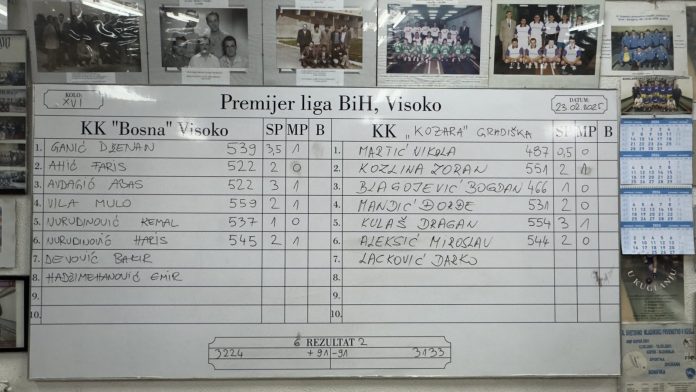 KOLO:
XVI
Premijer liga BiH, Visoko
DATUM:
23.02.2025
KK "Bosna" Visoko SP MP B KK „KOZARA" GRADIŠKA SP MP B
1. GANIĆ DŽENAN 539 3,5 1 1. MARTIĆ NIKOLA 487 0,5 0
2. AHIĆ FARIS 522 2 0 2. KOZLINA ZORAN 551 2 1
3. AVDAGIĆ ABAS 522 3 1 3. BLAGOJEVIĆ BOGDAN 466 1 0
4. VILA MULO 559 2 1 4. MANDIĆ ĐORĐE 531 2 0
5. NURUDINOVIĆ KEMAL 537 1 0 5. KULAŠ DRAGAN 554 3 1
6. NURUDINOVIĆ HARIS 545 2 1 6. ALEKSIĆ MIROSLAV 544 2 0
7. DEVOVIĆ BAKIR 7. LACKOVIĆ DARKO
8. HADZIMEHANOVIĆ EMIR 8.
9. 9.
10. 10.
6 REZULTAT 2
3224 +91 -91 3133
U KUGLANJU